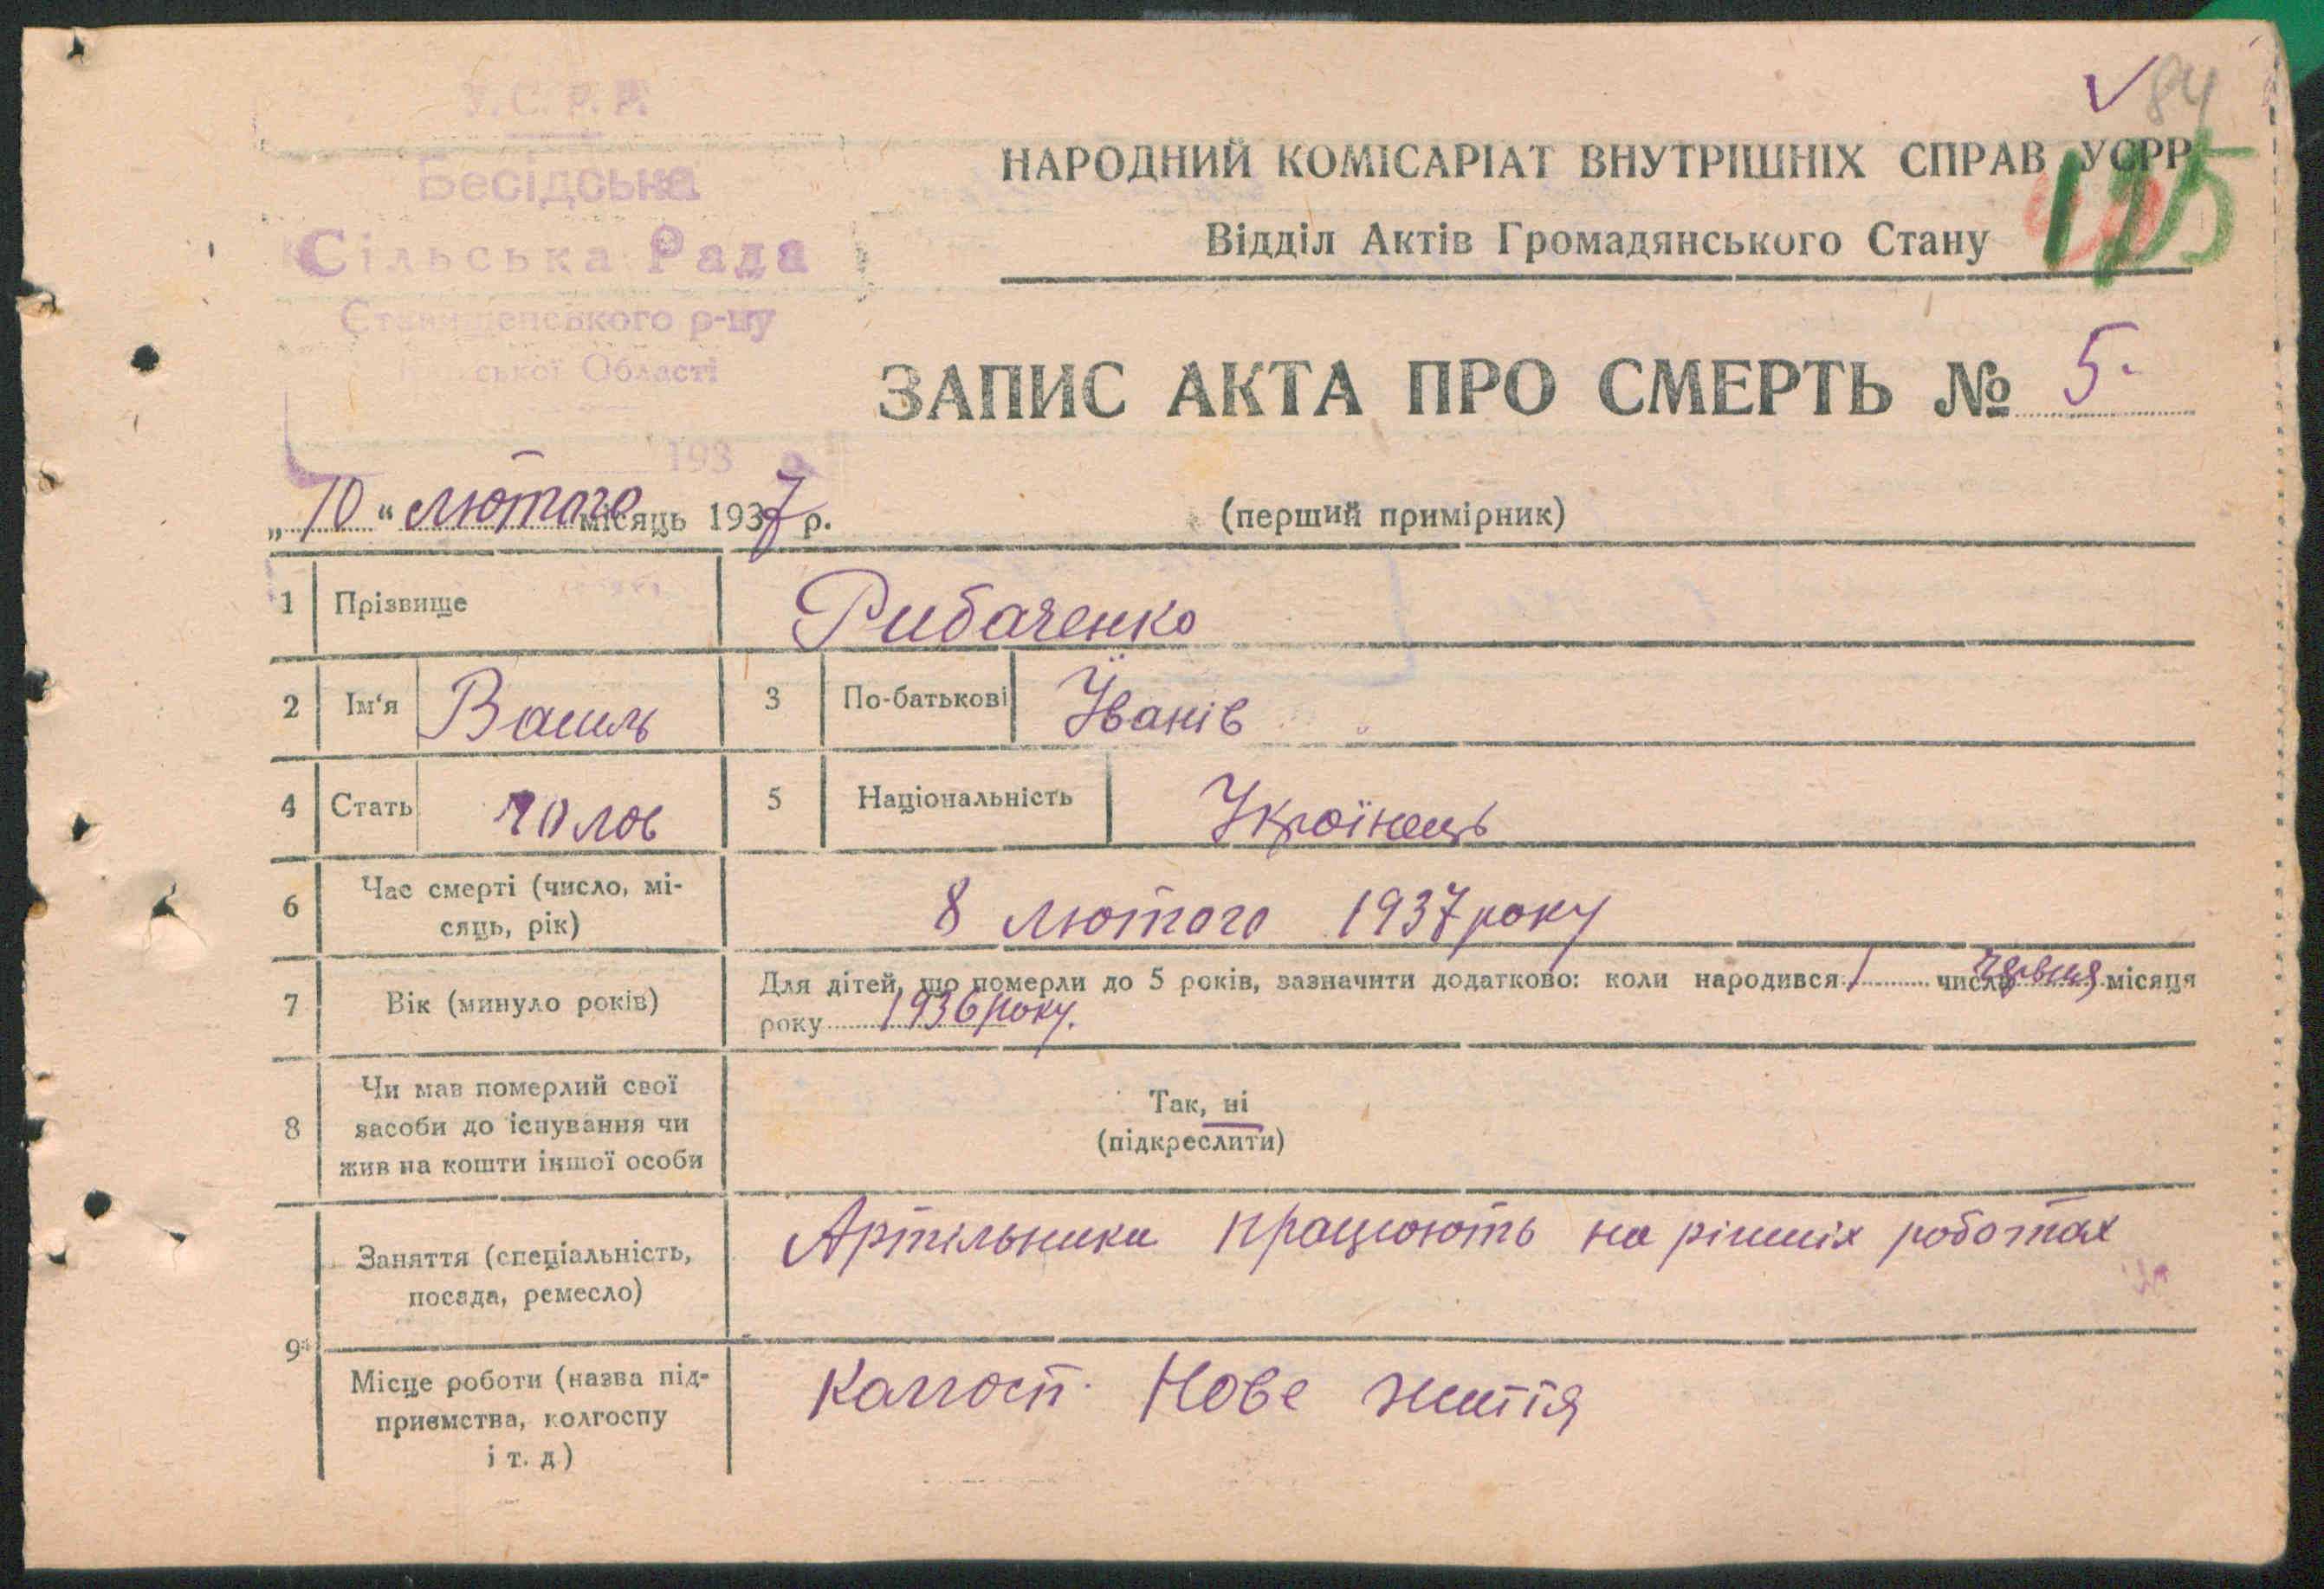 У. С. Р. Р.
Бесідська
Сільська Рада
Ставищенського р-ну
Київської Області
193 р.
84
125
НАРОДНИЙ КОМІСАРІАТ ВНУТРІШНІХ СПРАВ УСРР
Відділ Актів Громадянського Стану
ЗАПИС АКТА ПРО СМЕРТЬ № 5.
„10“ лютого місяць 1937 р.
(перший примірник)
1 Прізвище Рибаченко
2 Ім'я Василь 3 По-батькові Їванів
4 Стать чолов 5 Національність Українець
6 Час смерті (число, мі-
сяць, рік) 8 лютого 1937 року
7 Вік (минуло років) Для дітей, що померли до 5 років, зазначити додатково: коли народився 1 числа червня місяця
року 1936 року.
8 Чи мав померлий свої
засоби до існування чи
жив на кошти іншої особи
Так, ні
(підкреслити)
9 Заняття (спеціальність,
посада, ремесло) Артільники працюють на рішніх роботах
Місце роботи (назва під-
приємства, колгоспу
і т. д) Колгосп Нове життя